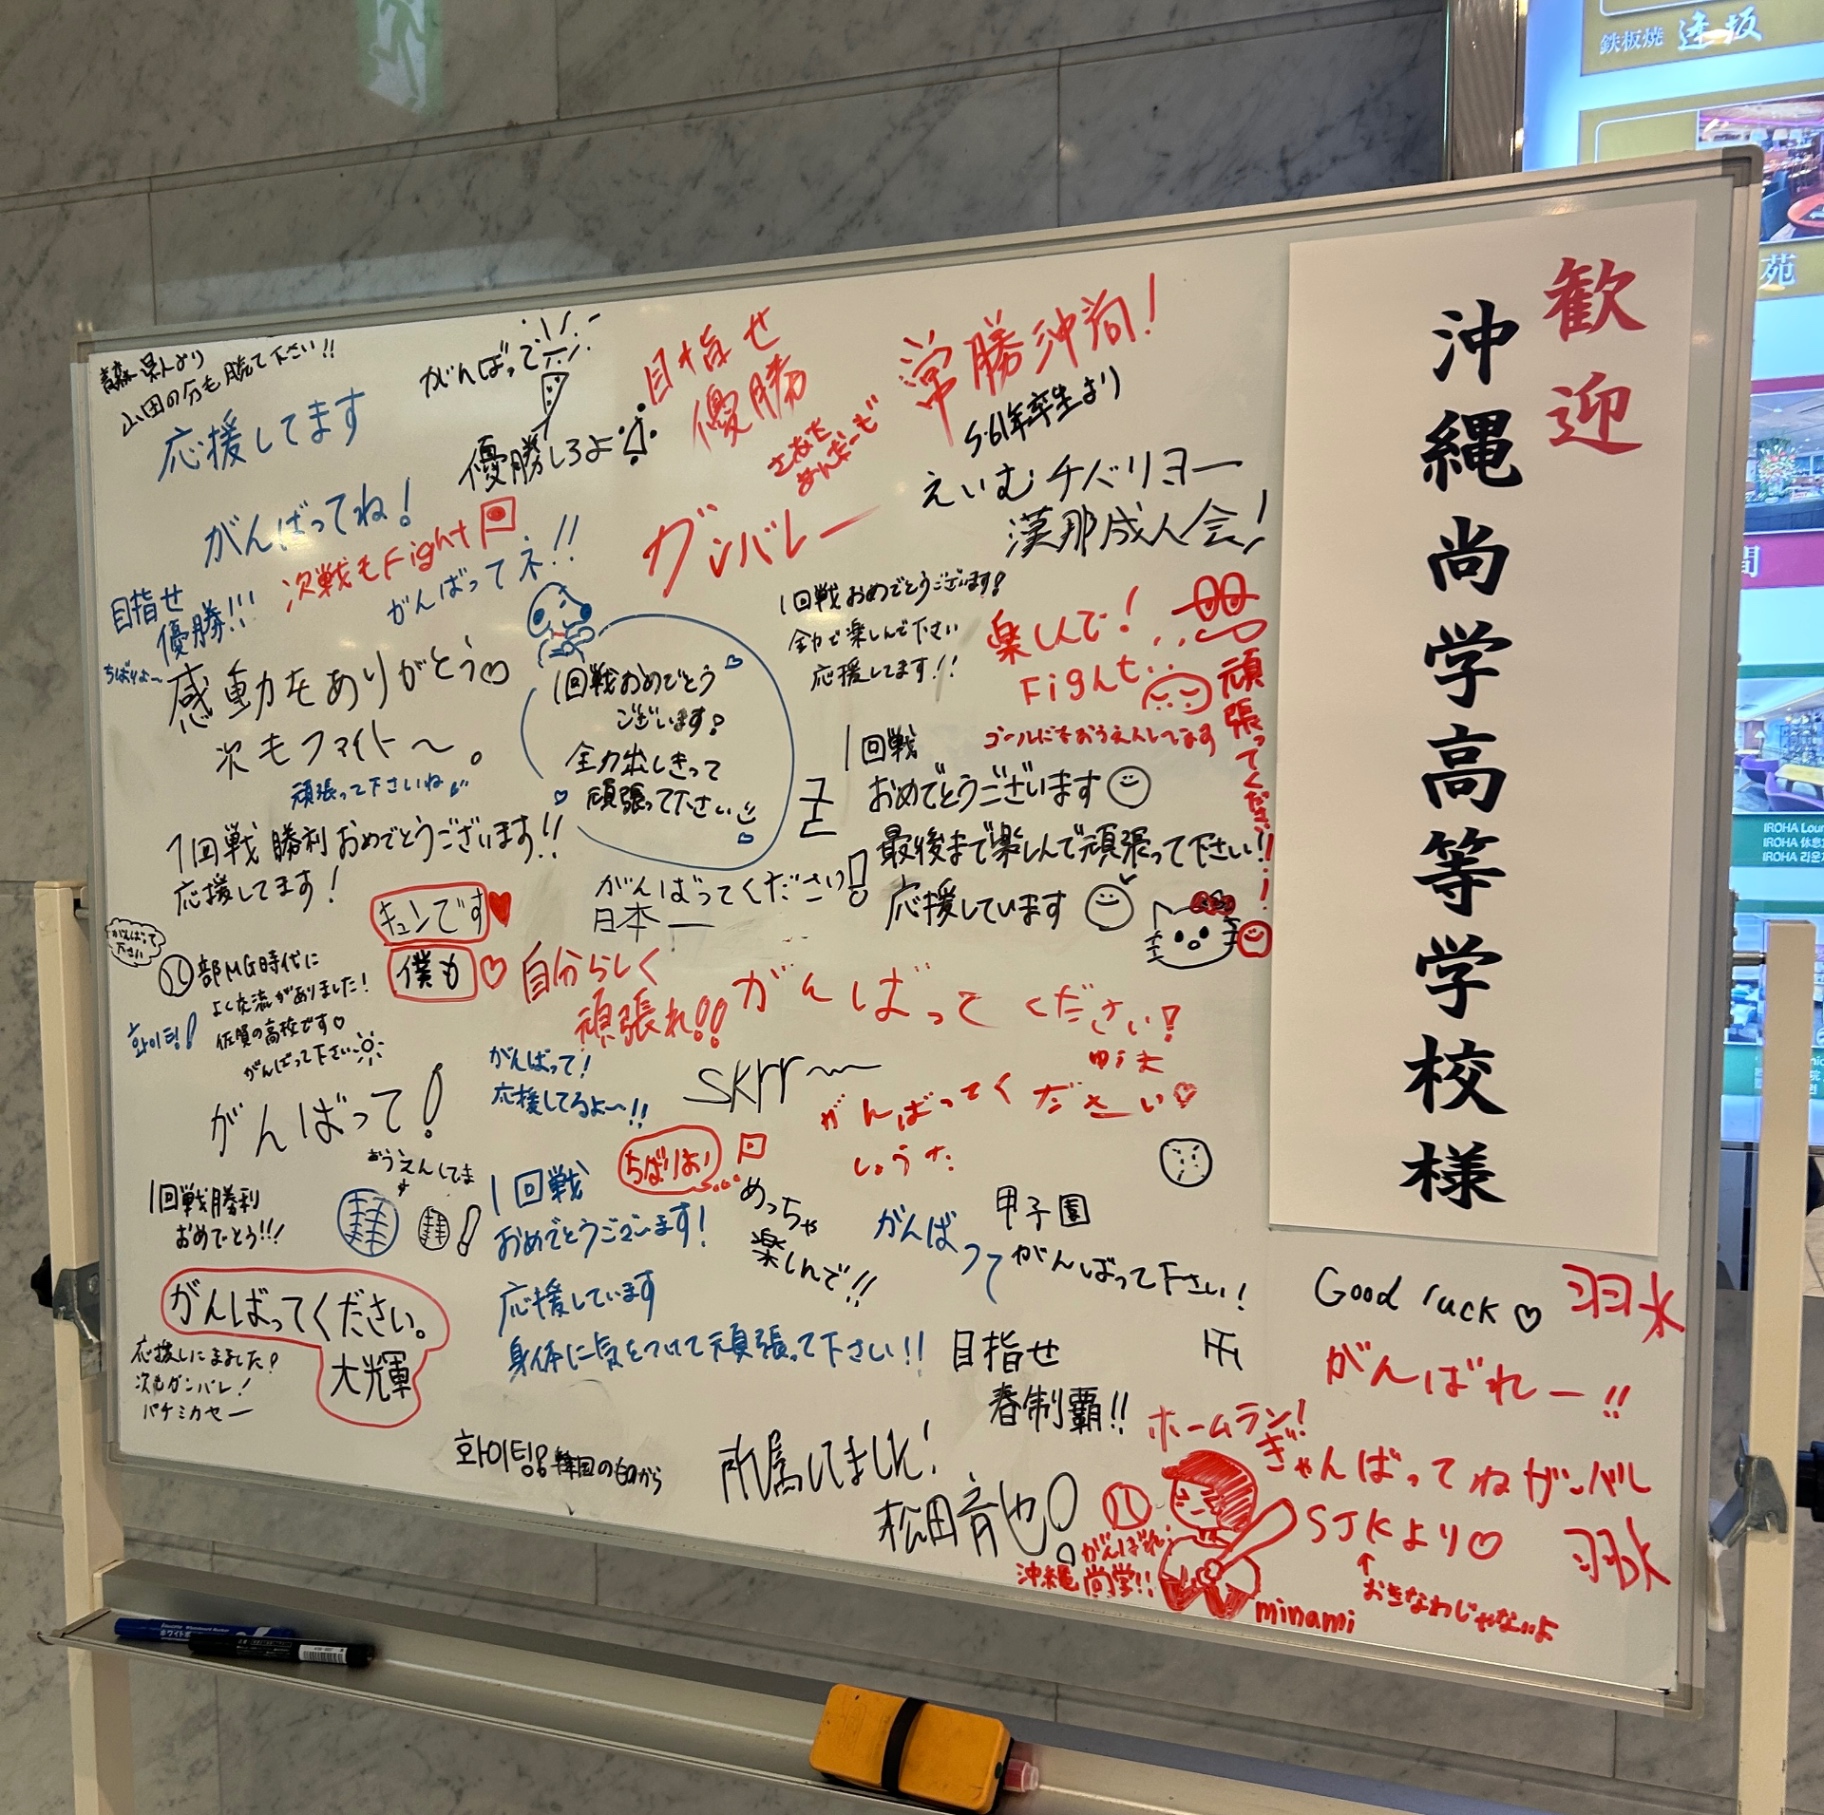 鉄板焼 達坂
苑
間
IROHA Lou
IROHA 休息
IROHA 라운지
歓迎
沖縄尚学高等学校様
青森県人より
山田の分も勝て下さい!!
応援してます
がんばって
優勝しろよ
目指せ
優勝
常勝沖尚!
S.61年卒生より
えいむチバリヨー
漢那成人会!
がんばってね!
次戦もFight
がんばってネ!!
ガンバレー
目指せ
優勝!!!
ちばりよ〜
感動をありがとう
次もファイト〜。
頑張って下さいね
1回戦おめでとう
ございます!
全力出しきって
頑張って下さい
1回戦おめでとうございます!
全力で楽しんで下さい
応援してます!!
楽しんで!
Fight...
頑張ってください!!
1回戦
おめでとうございます
最後まで楽しんで頑張って下さい!!
応援しています
1回戦勝利おめでとうございます!!
応援してます!
キュンです
僕も
がんばってください!
日本一
がんばって
下さい
部MG時代に
よく交流がありました!
佐賀の高校です♡
がんばって下さい
화이팅!
自分らしく
頑張れ!!
がんばってください!
がんばって!
応援してるよ〜!!
skrr〜
がんばってください♡
しょうた
がんばって!
おうえんしてま
ちばりよ!
1回戦勝利
おめでとう!!!
1回戦
おめでとうございます!
応援しています
身体に気をつけて頑張って下さい!!
めっちゃ
楽しんで!!
がんばって
甲子園
がんばって下さい!
がんばってください。
大輝
次もガンバレ!
バチミカセー
目指せ
春制覇!!
화이팅!! 韓国のものから
所属してました!
松田育也!
Good luck ♡
がんばれー!!
ホームラン!
ぎゃんばってねガンバレ
SJKより♡
おきなわじゃないよ
がんばれ!
沖縄尚学!!
minami